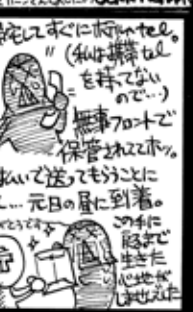 宅してすぐにホテルへtel。
(私は携帯tel
を持ってない
ので…)
無事フロントで
保管されててホッ。
払いで送ってもらうことに
…元日の昼に到着。
この手に
戻るまで
生きた
心地が
しませんでした